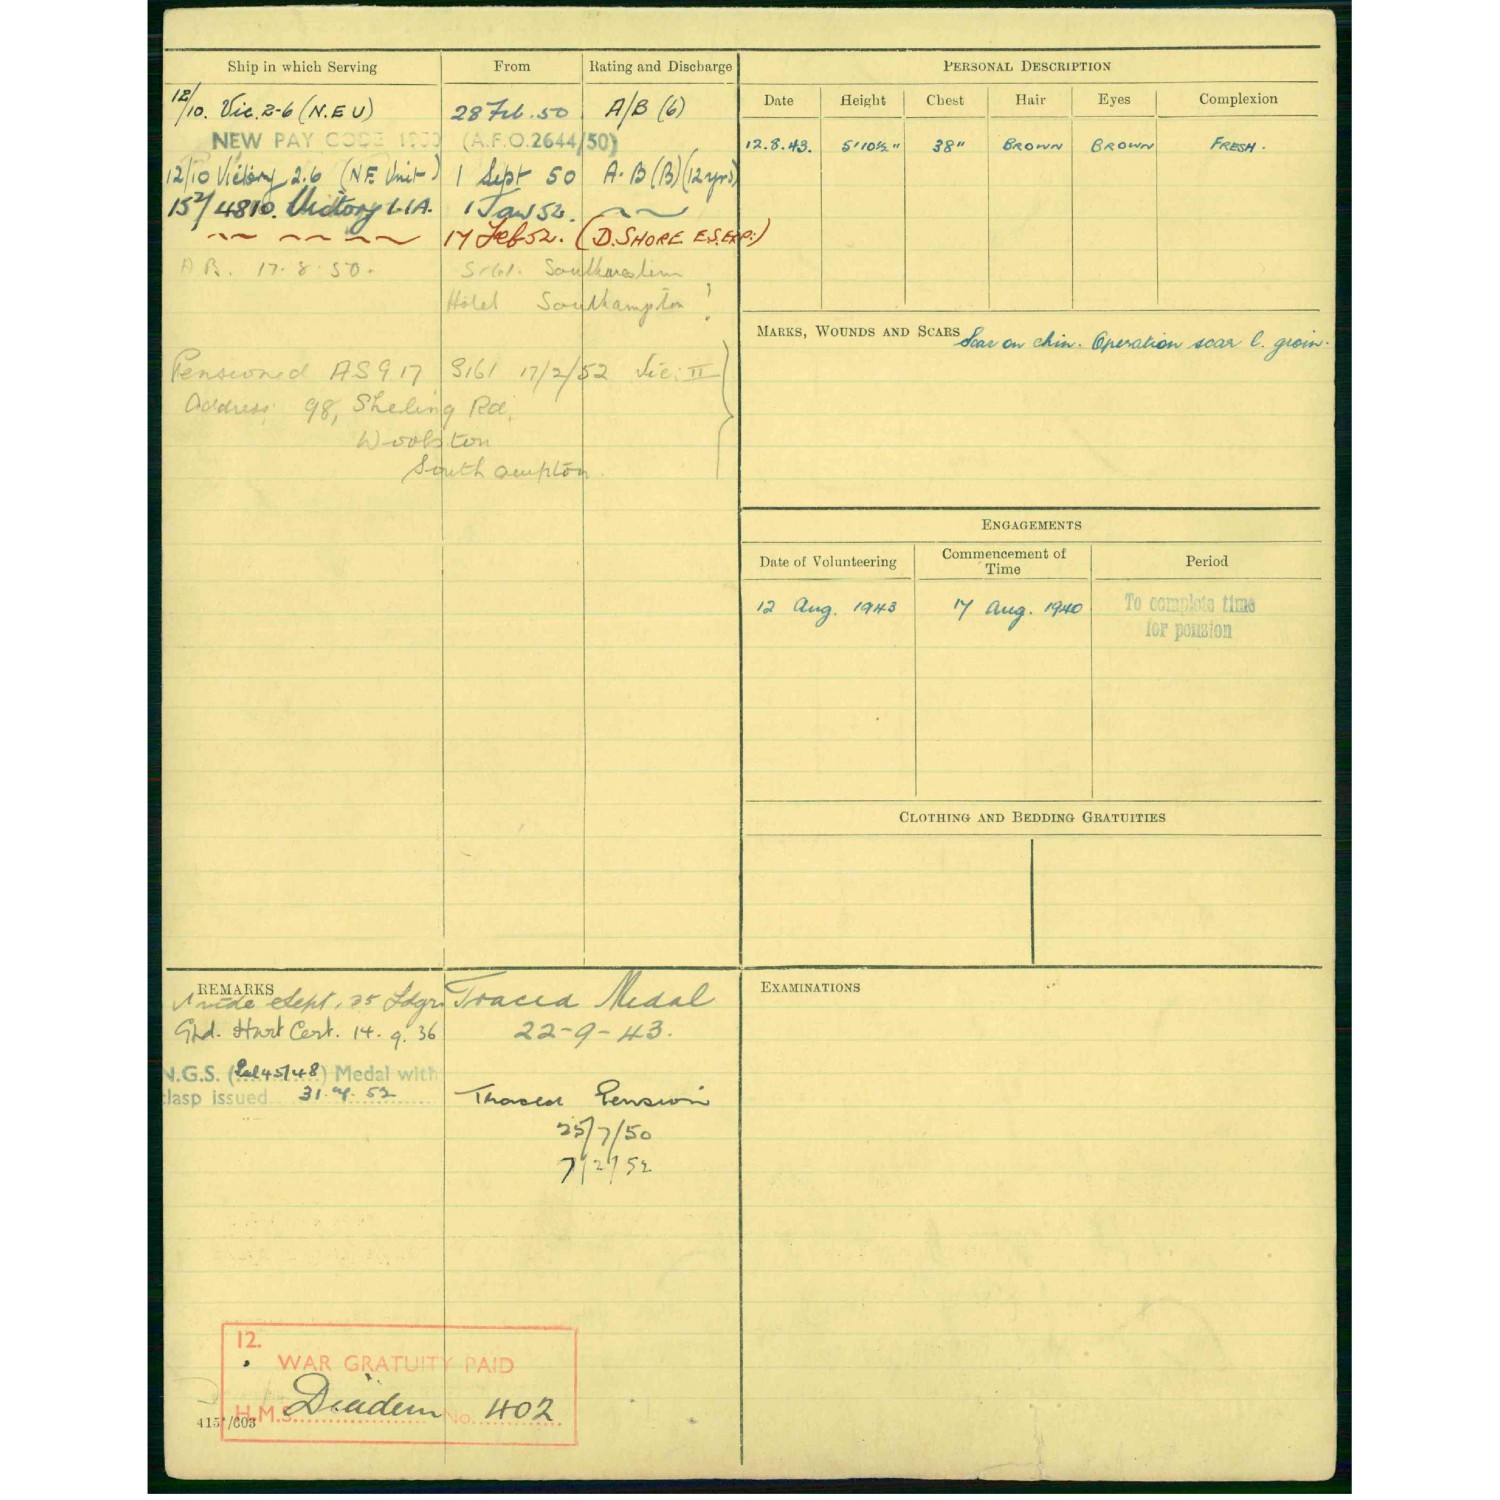 Ship in which Serving From Rating and Discharge
12/10. Vic. 2-6 (N.E U) 28 Feb. 50 A/B (6)
NEW PAY CODE 1950 (A.F.O.2644/50)
12/10 Victory 2.6 (NE Unit) 1 Sept 50 A.B (B) (12 yrs)
152/4810. Victory L.I.A. 1 Jan 52. ~~
~~ ~~ ~~ 17 Feb 52. (D. SHORE E.S.EXP:)
A B. 17.8.50.
Hotel Southampton !
Pensioned AS 917 3161 17/2/52 Vic: II
Address: 98, Sheling Rd,
Woolston
Southampton.
PERSONAL DESCRIPTION
Date Height Chest Hair Eyes Complexion
12.8.43. 5'10½" 38" BROWN BROWN FRESH.
MARKS, WOUNDS AND SCARS Scar on chin. Operation scar l. groin.
ENGAGEMENTS
Date of Volunteering Commencement of Time Period
12 Aug. 1943 17 Aug. 1940 To complete time
for pension
CLOTHING AND BEDDING GRATUITIES
REMARKS
Sept. 35 Ldgr
Hurt Cert. 14.9.36
N.G.S. (Pal 45/48) Medal with
clasp issued 31. 52
Traced Medal
22-9-43.
Traced Pension
25/7/50
7/2/52
12.
WAR GRATUITY PAID
H.M.S. Diadem No. 402
/603
EXAMINATIONS